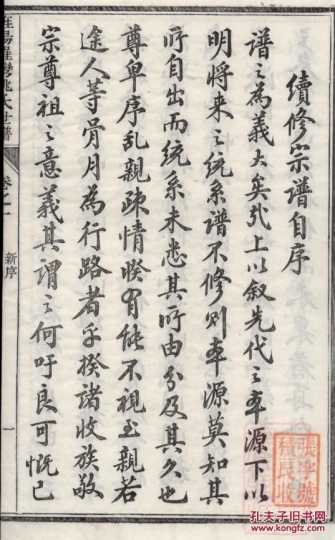 續修宗譜自序
譜之為義大矣哉上以叙先代之本源下以
明將来之統系譜不修則本源莫知其
所自出而統系未悉其所由分及其久也
尊卑序乱親疎情暌有能不視至親若
途人等骨月為行路者乎揆諸收族敬
宗尊祖之意義其謂之何吁良可慨已
姚氏世譜
卷之一
新序
一
張字號
續良收
孔夫子旧书网